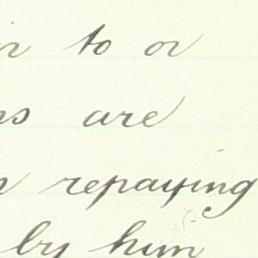 to or
are
repaying
by him